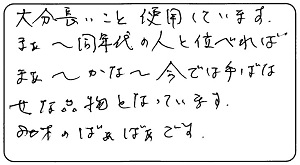 大分長いこと使用しています.
まぁ〜同年代の人と位べれば
まぁ〜かな〜今では手ばな
せな品物となっています.
のばぁばぁです.